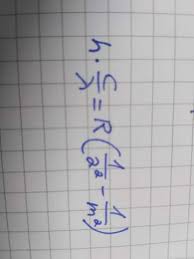 h · c/λ = R(1/2² - 1/m²)